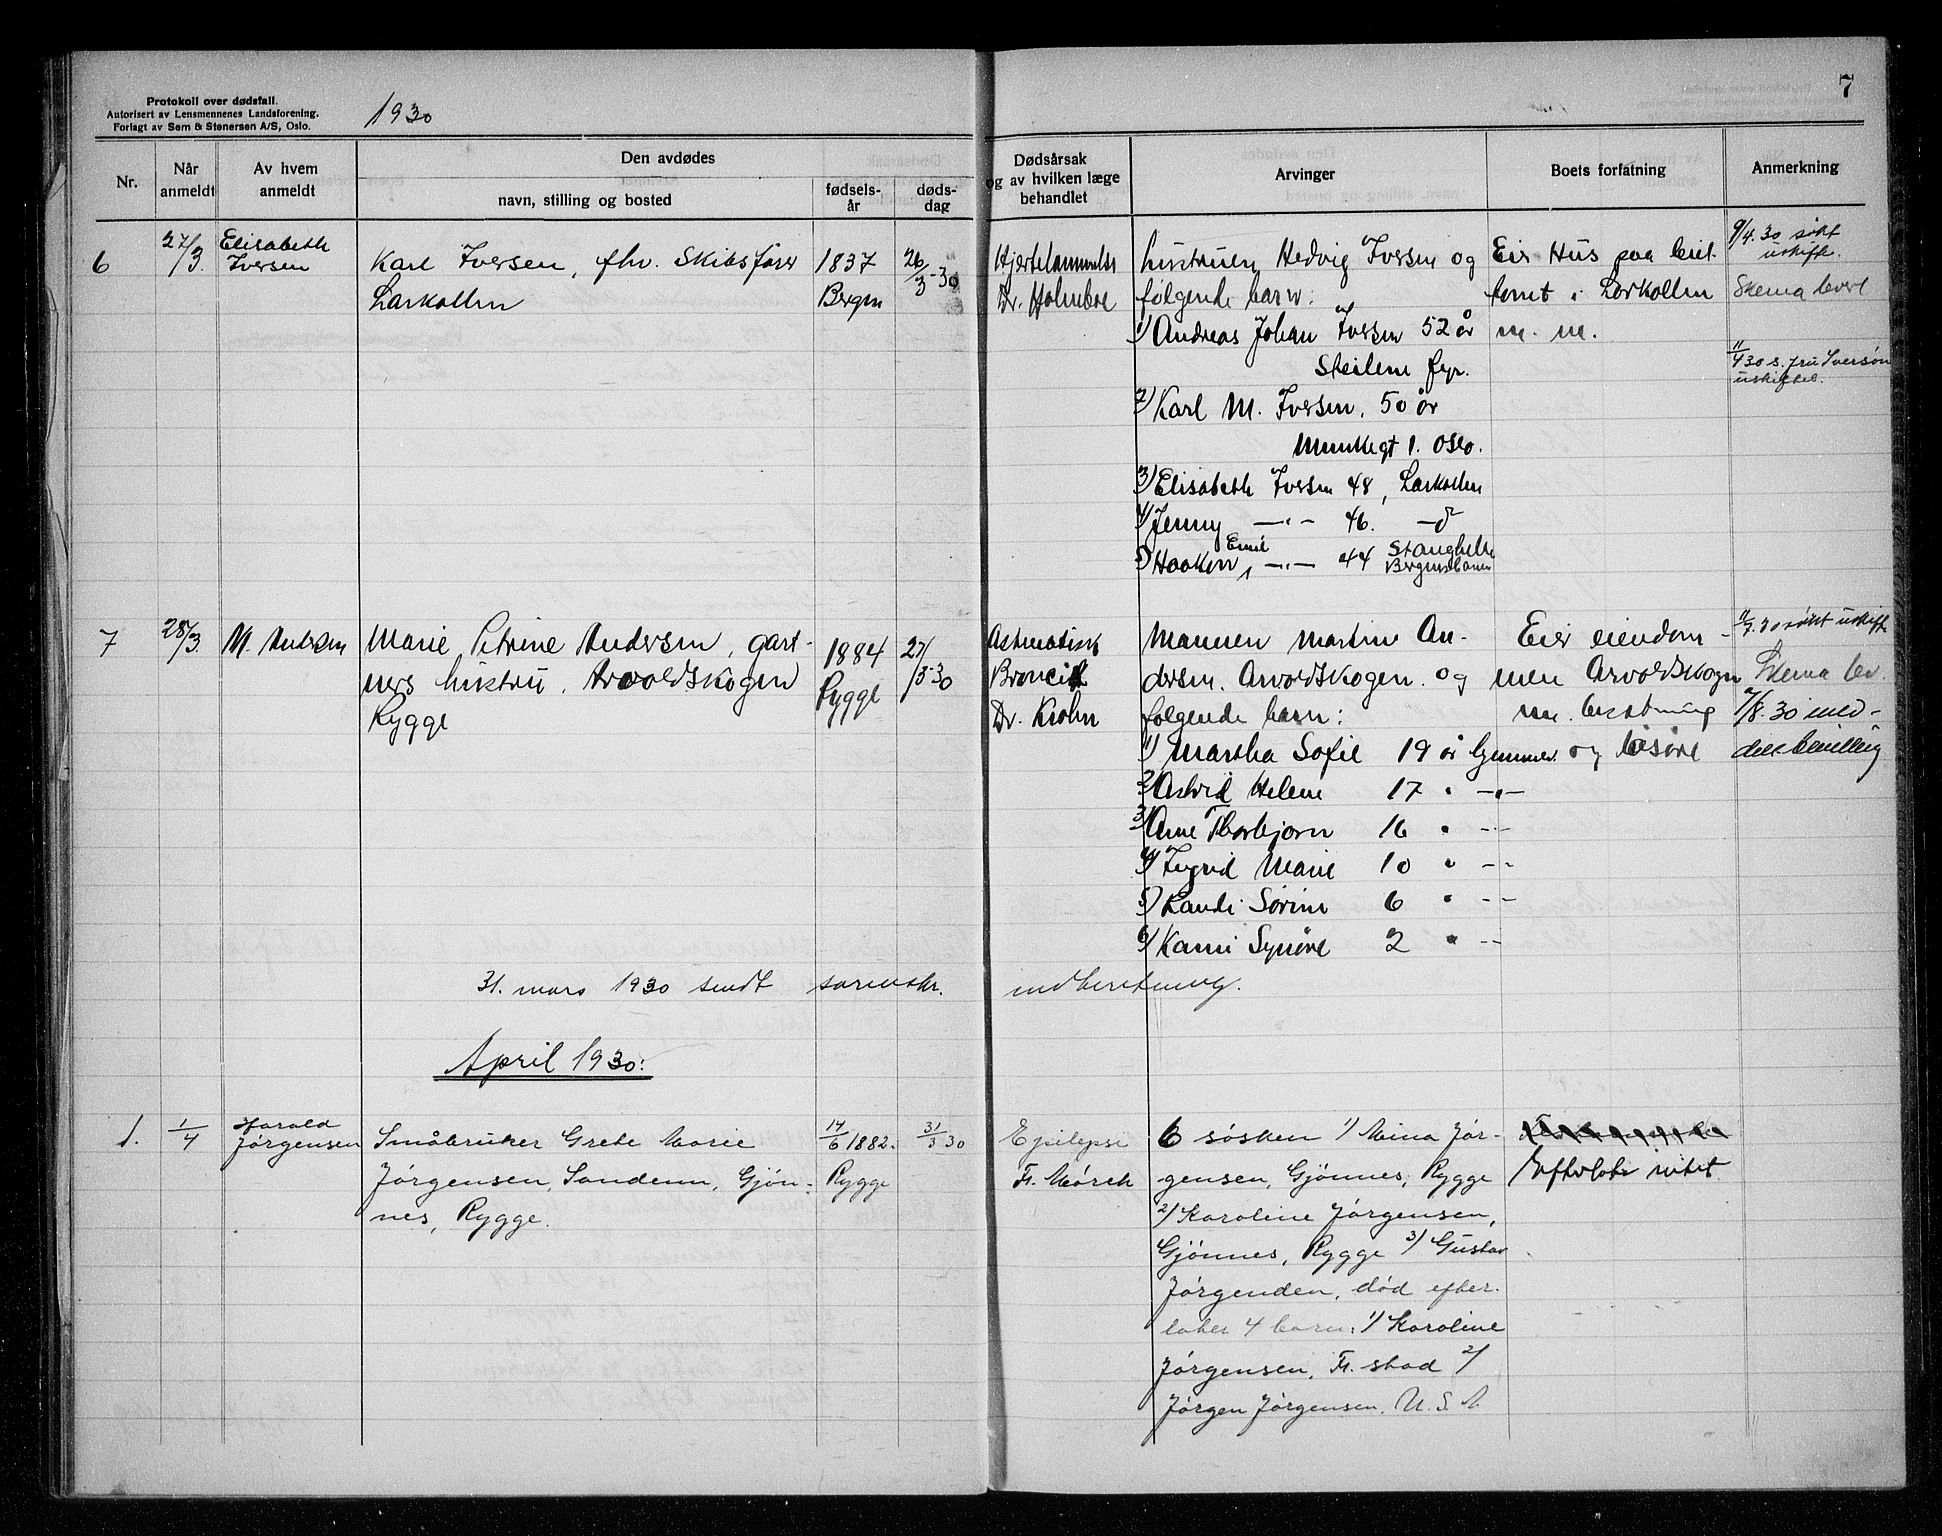 Protokoll over dødsfall.
Autorisert av Lensmennenes Landsforening.
Forlagt av Sem & Stenersen A/S, Oslo.
1930
7
Nr.
Når anmeldt
Av hvem anmeldt
Den avdødes
navn, stilling og bosted
fødsels-år
døds-dag
Dødsårsak og av hvilken læge behandlet
Arvinger
Boets forfatning
Anmerkning
6
27/3.
Elisabeth
Iversen
Karl Iversen, fhv. Skibsfører
Larkollen
1837
Bergen
26/3-30
Hjertelammelse
Dr. Holmboe
hustruen Hedvig Iversen og
følgende barn:
1) Andreas Johan Iversen 52 år
Steilene fyr.
2) Karl M. Iversen, 50 år
Munkegt 1. Oslo.
3) Elisabeth Iversen 48, Larkollen
4) Jenny —"— 46. —d°
5) Haakon Emil —"— 44 Stanghelle
Bergensbanen
Eier Hus paa leiet
tomt i Larkollen
m. m.
9/4.30 søkt
uskifte.
Skema levert
11/4 30 s. fru Iversøn
uskiftet.
7
28/3.
M. Andersen
Marie Petrine Andersen, gart-
ners hustru, Arvoldskogen
Rygge
1884
Rygge
27/3-30
Astmatisk
Broncit
Dr. Krohn
Mannen Martin An-
dersen. Arvoldskogen. og
følgende barn:
1) Martha Sofie 19 år hjemmev.
2) Astrid Helene 17 " —"—
3) Arne Thorbjørn 16 " —"—
4) Ingrid Marie 10 " —"—
5) Randi Sørine 6 " —"—
6) Karni Synøve 2 " —"—
Eier eiendom-
men Arvoldskogen
m. besetning
og løsøre
søkt uskifte
Skema lev.
7/8.30 med-
delt bevilling
31. mars 1930 sendt sorenskr. indberetning.
April 1930:
1.
1/4
Harald
Jørgensen
Småbruker Grete Marie
Jørgensen, Sandenn, Gjøn-
nes, Rygge.
14/6 1882.
Rygge
31/3 30
Epilepsi
Fr. Mørch
6 søsken 1) Mina Jør-
gensen, Gjønnes, Rygge
2) Karoline Jørgensen,
Gjønnes, Rygge 3) Gustav
Jørgenden, død efter-
later 4 barn: 1) Karoline
Jørgensen, Fr. stad 2)
Jørgen Jørgensen, U. S. A
Efterlote intet.